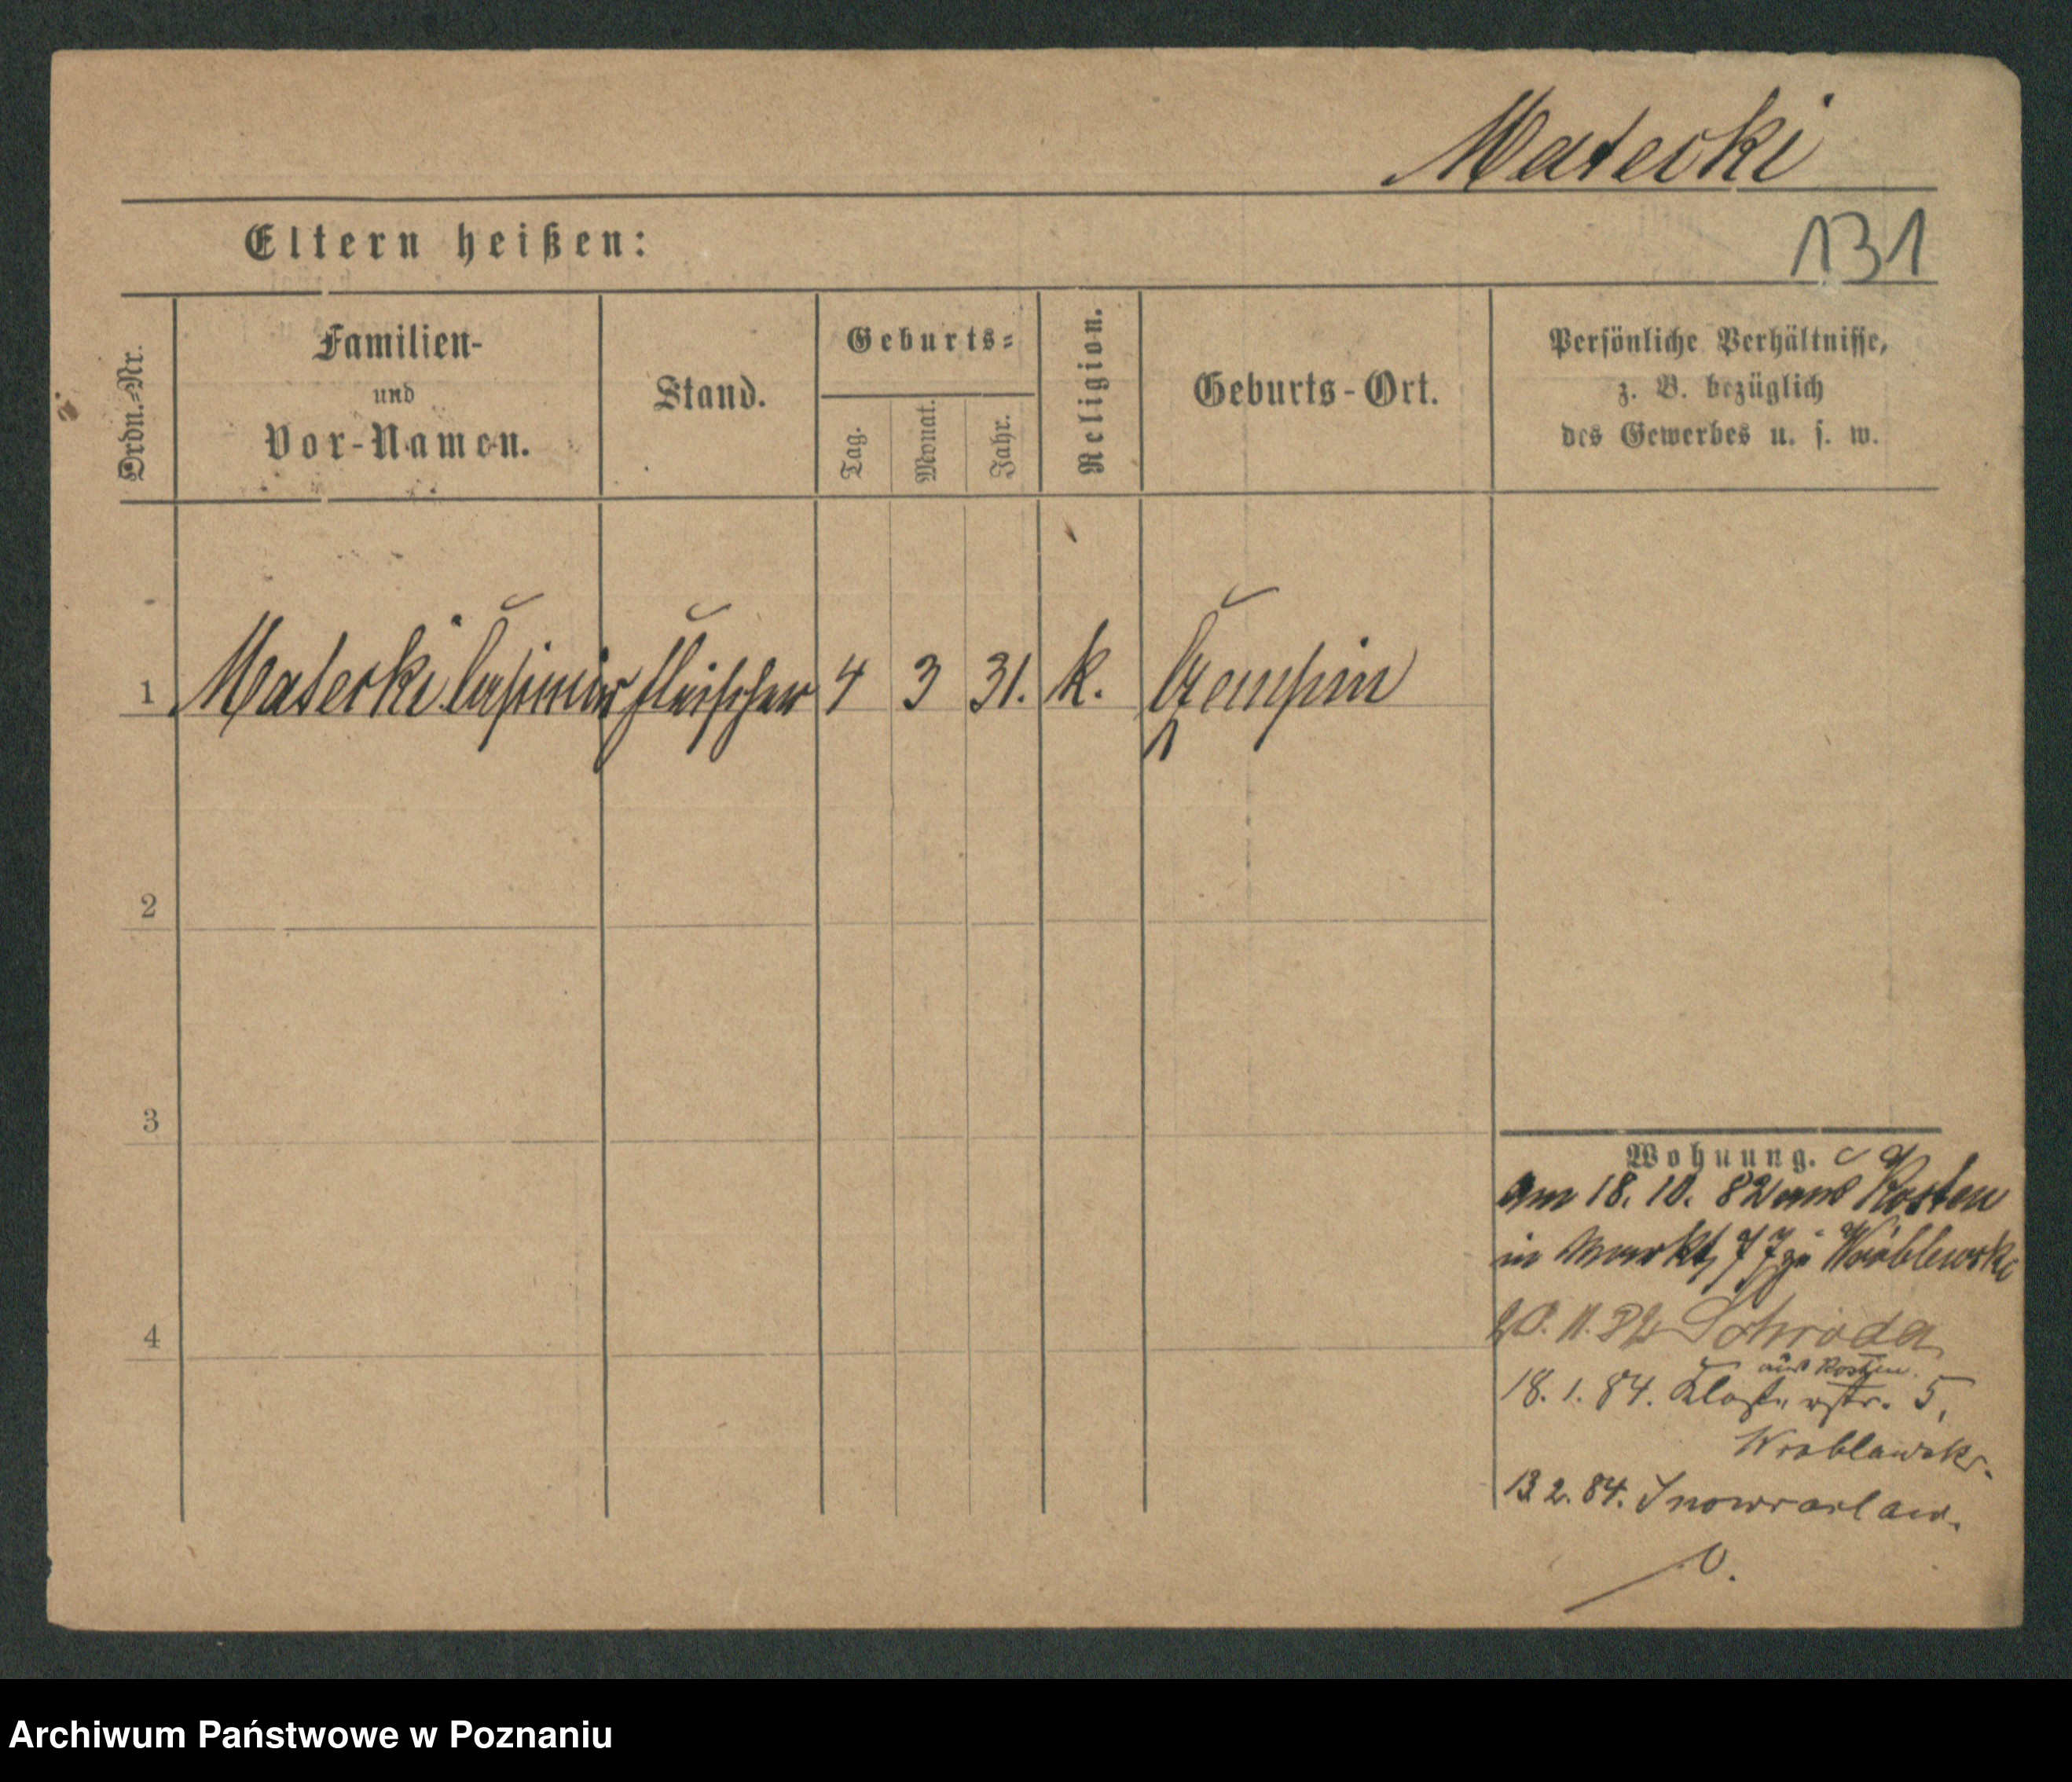 Matecki
Eltern heißen:
131
Ordn.-Nr.
Familien-
und
Vor-Namen.
Stand.
Geburts-
Tag.
Monat.
Jahr.
Religion.
Geburts-Ort.
Persönliche Verhältnisse,
z. B. bezüglich
des Gewerbes u. s. w.
1 Matecki Casimir Fleischer 4 3 31. k. Czempin
2
3
4
Wohnung.
am 18. 10. 82 aus Kosten
in Markt 77 zu Wróblewski
20. 11. 82 Schroda
aus Kosten.
18. 1. 84. Klosterstr. 5,
Wroblewski.
13 2. 84. Inowrazlaw.
Archiwum Państwowe w Poznaniu